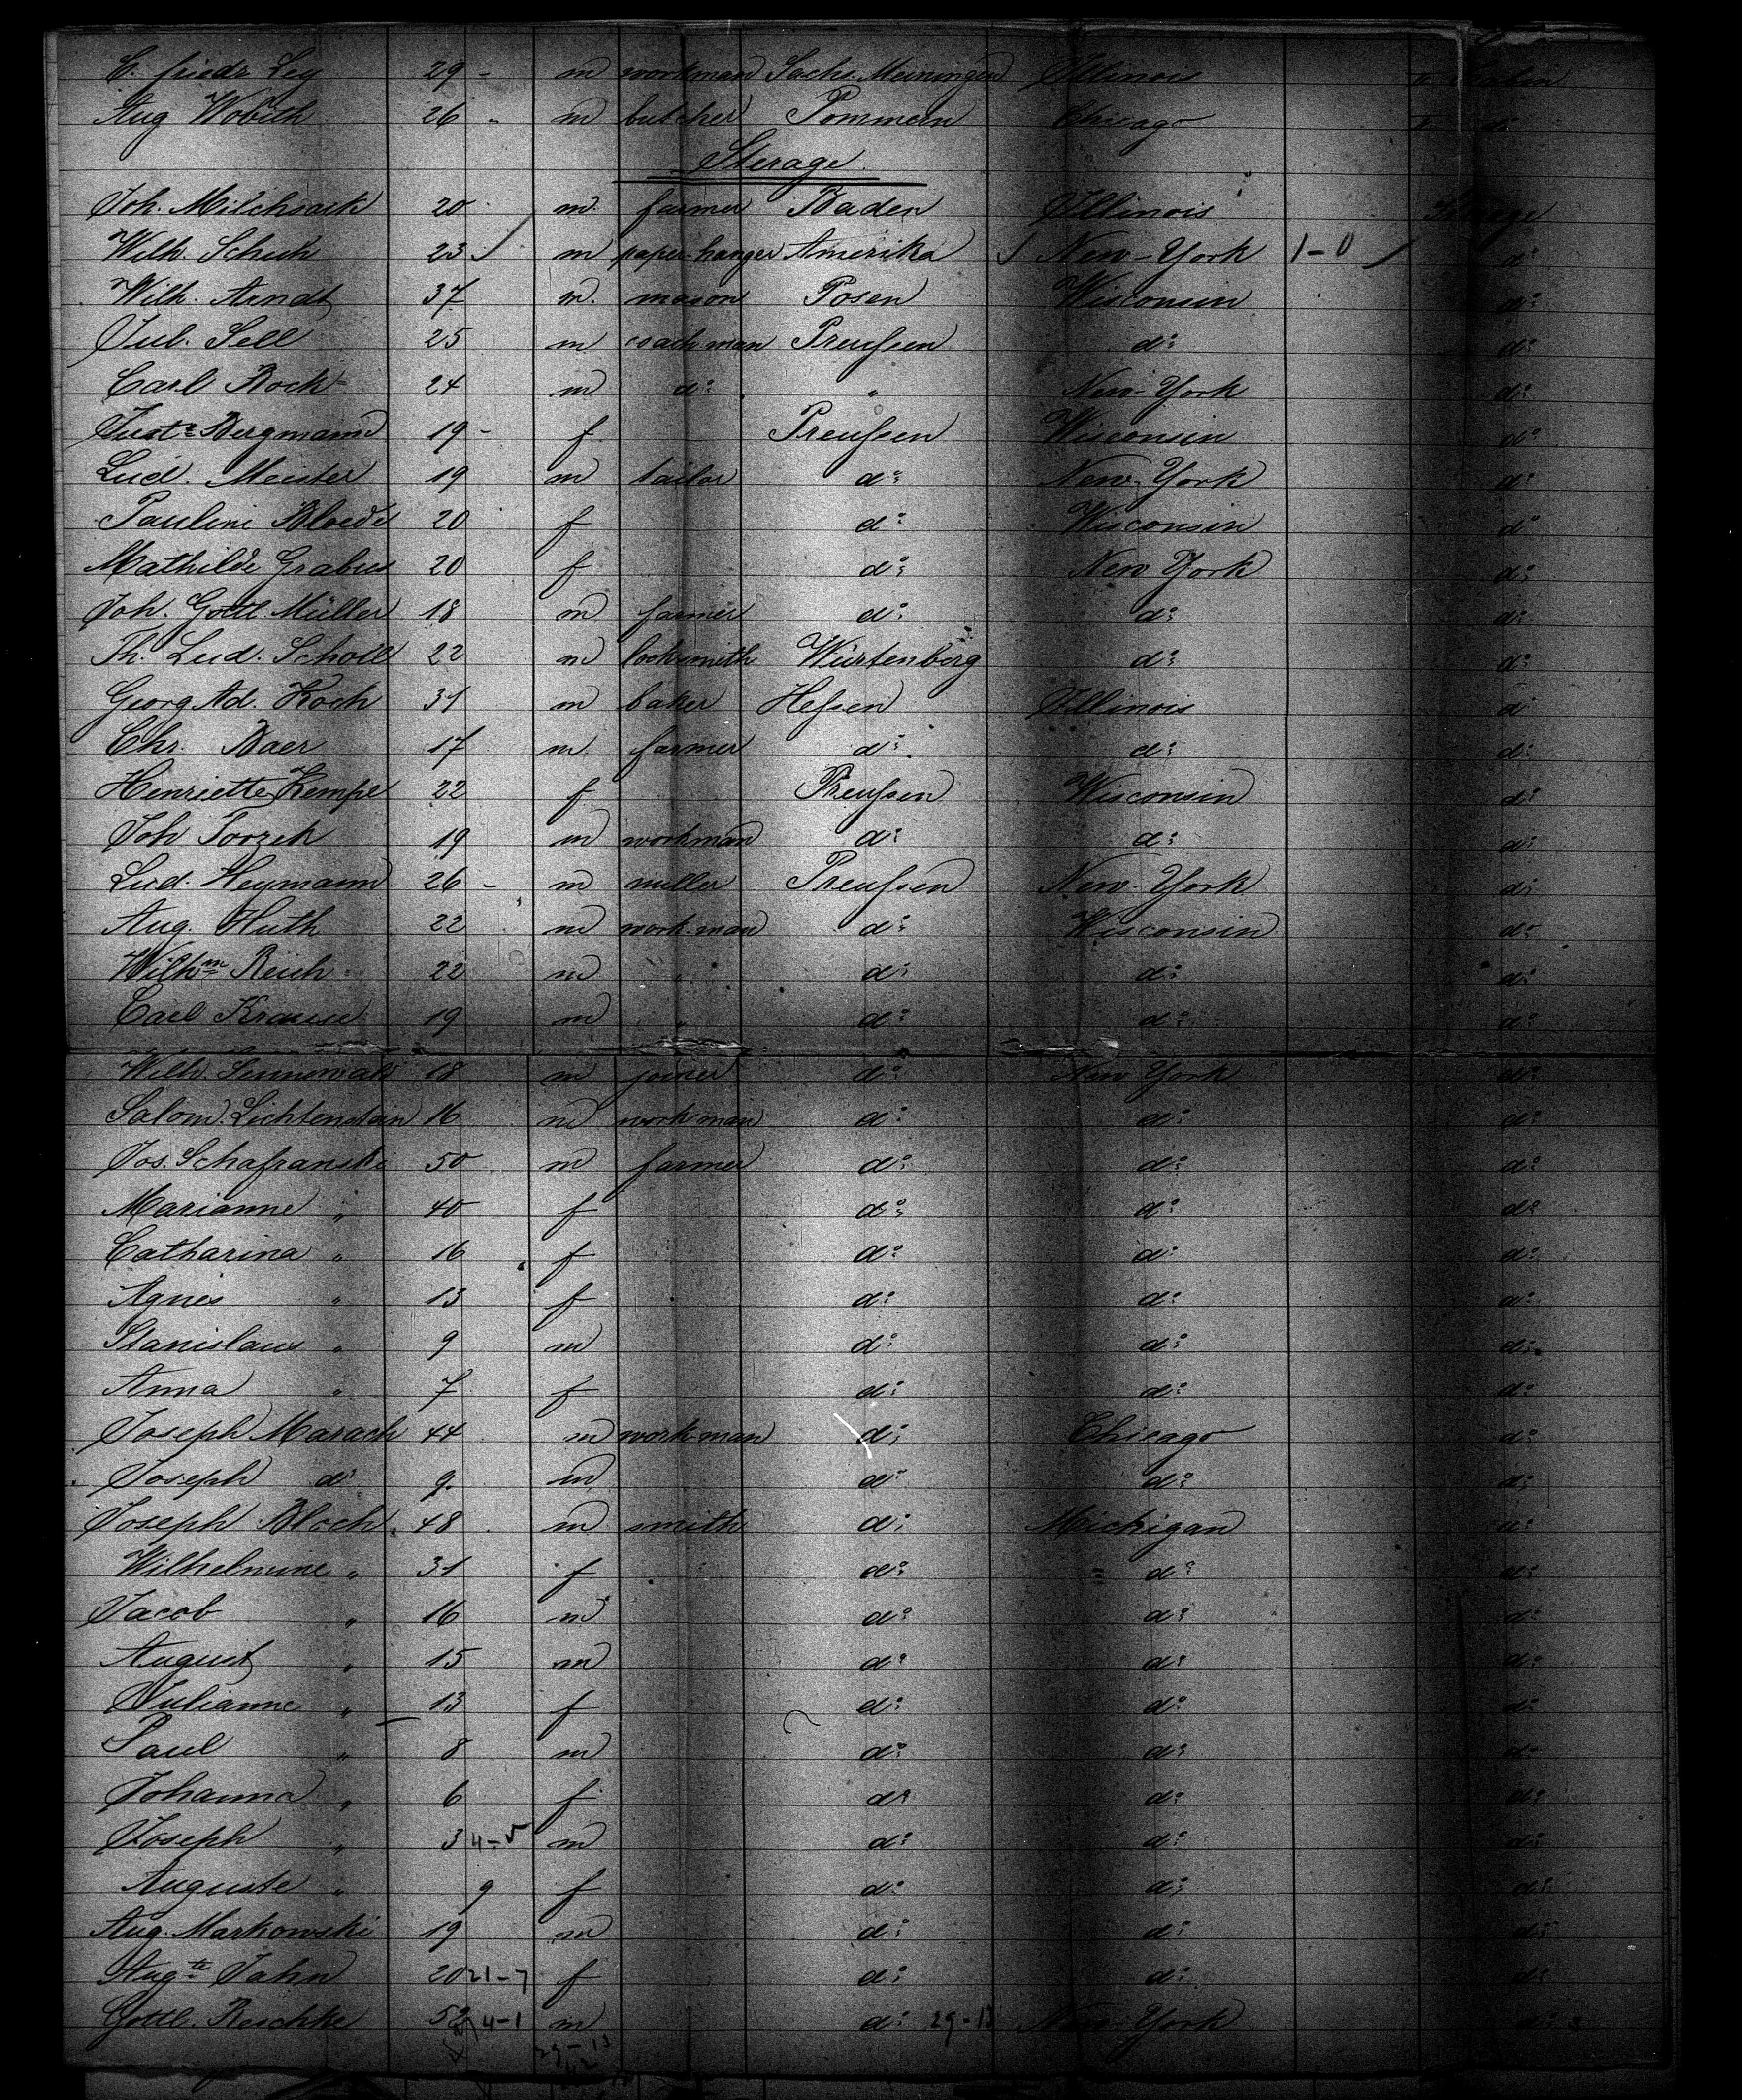 C. Friedr Ley 29 - m workman Sachs. Meiningen Illinois
Aug Wobith 26 " m butcher Pommern Chicago d:
Sterage
Joh. Milchsack 20 m. farmer Baden Illinois
Wilh. Schuh 23 m paper-hanger Amerika New-York 1-0 d:
Wilh. Arndt 37 m. mason Posen Wisconsin d:
Jul. Sell 25 m coachman Preußen d: d:
Carl Rock 24 m d: " New-York d:
Just: Bergmann 19 - f Preußen Wisconsin d:
Lud. Meister 19 m tailor d: New-York d:
Pauline Bloede 20 f d: Wisconsin d:
Mathilde Grabus 20 f d: New York d:
Joh. Gottl. Müller 18 m farmer d: d: d:
Th. Lud. Scholl 22 m locksmith Würtenberg d: d:
Georg Ad. Koch 31 m baker Heßen Illinois d:
Chr. Baer 17 m. farmer d: d: d:
Henriette Kempe 22 f Preußen Wisconsin d:
Joh 19 m workman d: d: d:
Lud. Heymann 26 - m miller Preußen New-York d:
Aug. Huth 22 m work-man d: Wisconsin d:
Wilhm Reich 22 m " d: d: d:
Carl Krause 19 m " d: d: d:
Wilh. 18 m joiner d: New York d:
Salom. Lichtenstein 16 m work-man d: d: d:
Jos. Schafranski 50 m farmer d: d: d:
Marianne " 40 f d: d: d:
Catharina " 16 f d: d: d:
Agnes " 13 f d: d: d:
Stanislaus " 9 m d: d: d:
Anna " 7 f d: d: d:
Joseph Marach 44 m work-man d: Chicago d:
Joseph d: 9. m d: d: d:
Joseph Bloch 48 m smith d: Michigan d:
Wilhelmine " 31 f d: d: d:
Jacob " 16 m d: d: d:
August " 15 m d: d: d:
Julianne " 13 f d: d: d:
Paul " 8 m d: d: d:
Johanna " 6 f d: d: d:
Joseph " 3 4-5 m d: d: d:
Auguste " 9 f d: d: d:
Aug. Markowski 19 m d: d: d:
Augte Jahn 20 21-7 f d: d: d:
Gottl. Reschke 52 4-1 m d: 29-13 New-York d:
29-13